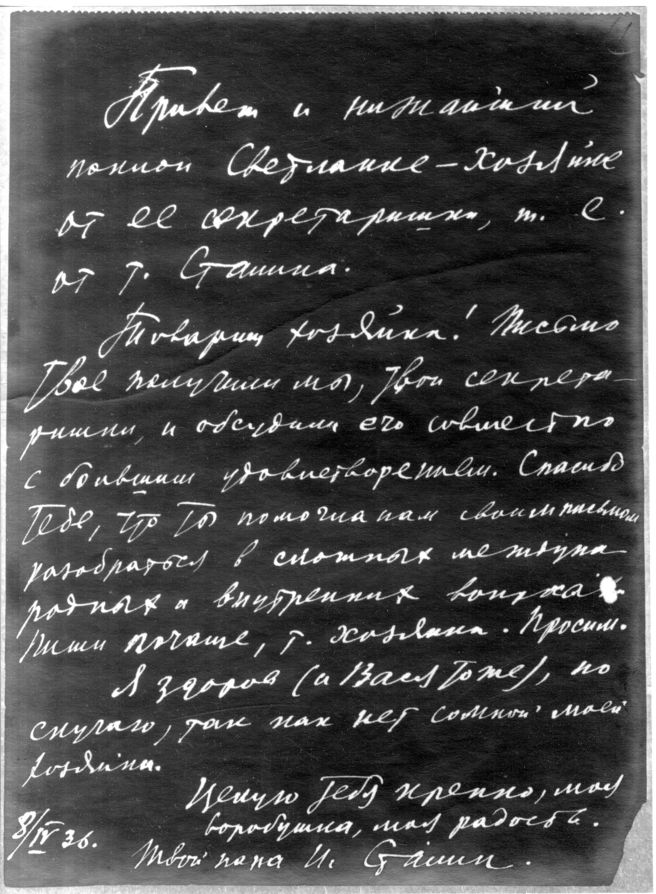 Привет и нижайший
поклон Светланке-Хозяйке
от ее секретаришки, т. е.
от т. Сталина.
Товарищ хозяйка! Письмо
твое получили мы, твои секрета-
ришки, и обсудили его совместно
с большим удовлетворением. Спасибо
тебе, что ты помогла нам своим письмом
разобраться в сложных междуна-
родных и внутренних вопросах.
Пиши почаще, т. хозяйка. Просим.
Я здоров (и Вася тоже), но
скучаю, так как нет со мной моей
хозяйки.
Целую тебя крепко, моя
воробушка, моя радость.
8/IV 36. Твой папа И. Сталин.